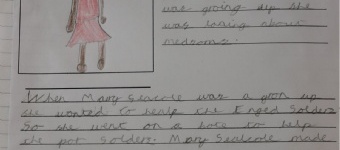 was growing up she
was laing about
medsons.
When Mary Seacole was a gron up
she wanted to healp the Enged Solders
So she went on a bote to help
the pot Solders. Mary Sealcole made